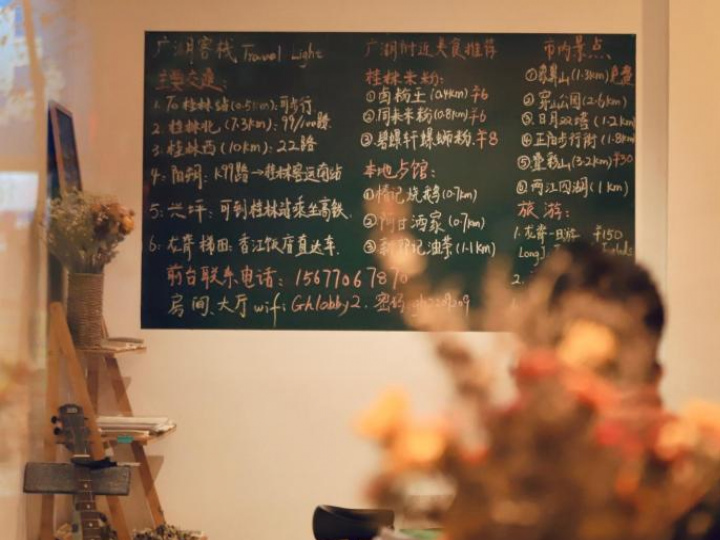 广湖客栈 Travel Light
主要交通:
1. To 桂林站(0.5km):可步行
2. 桂林北 (7.3km): 99/100路
3. 桂林西 (10km): 22路
4. 阳朔: K99路→桂林客运南站
5. 兴坪: 可到桂林站乘坐高铁
6. 龙脊梯田: 香江饭店直达车
前台联系电话: 15677067870
房间、大厅 wifi: Ghlobby2. 密码
广湖附近美食推荐
桂林米粉:
①卤粉王 (0.4km) ¥6
②同来米粉(0.8km) ¥6
③碧螺轩螺蛳粉 ¥8
本地步馆:
①杨记烧鹅(0.7km)
②阿甘酒家 (0.7km)
③ 记油茶 (1.1km)
市内景点
①象鼻山(1.3km)免费
②穿山公园(2.6km)
③日月双塔 (1.2km
④正阳步行街 (1.8km
⑤叠彩山(3.2km)¥30
⑥两江四湖 (1km)
旅游:
1. 龙脊一日游 ¥150
Long
2.